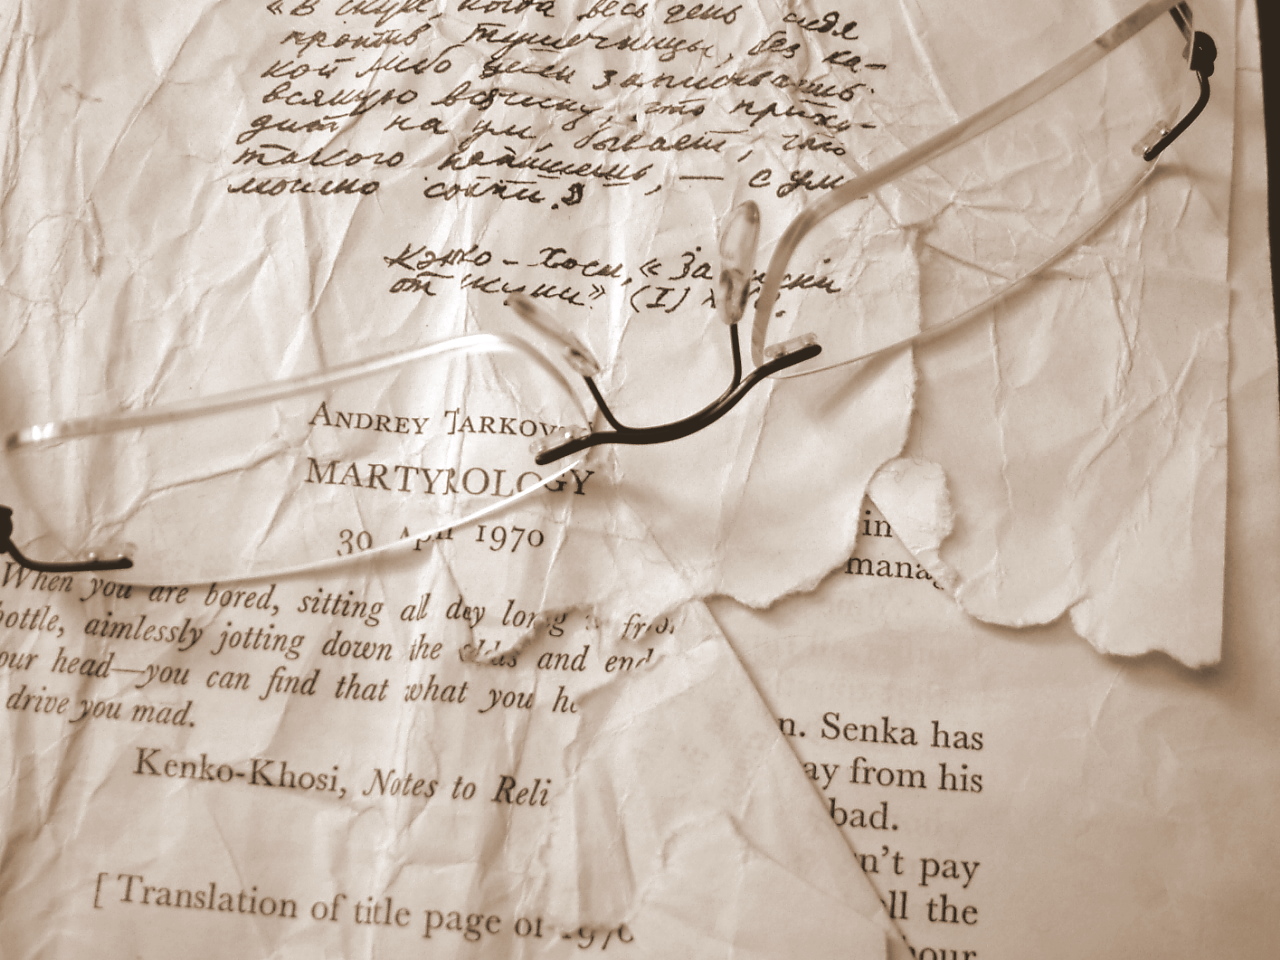 «В скуке, когда весь день сидя
против тушечницы, без ка-
кой либо цели записываешь
всякую всячину, что прихо-
дит на ум, бывает, что
такого напишешь, — с ума
можно сойти.»
Кэнко-Хоси, «За
от жизни» (I)
ANDREY TARKOV
MARTYROLOGY
30 April 1970
When you are bored, sitting all day long
bottle, aimlessly jotting down the odds and end
our head—you can find that what you
drive you mad.
Kenko-Khosi, Notes to Reli
[Translation of title page of 1970
in
mana
n. Senka has
ay from his
bad.
n't pay
ll the